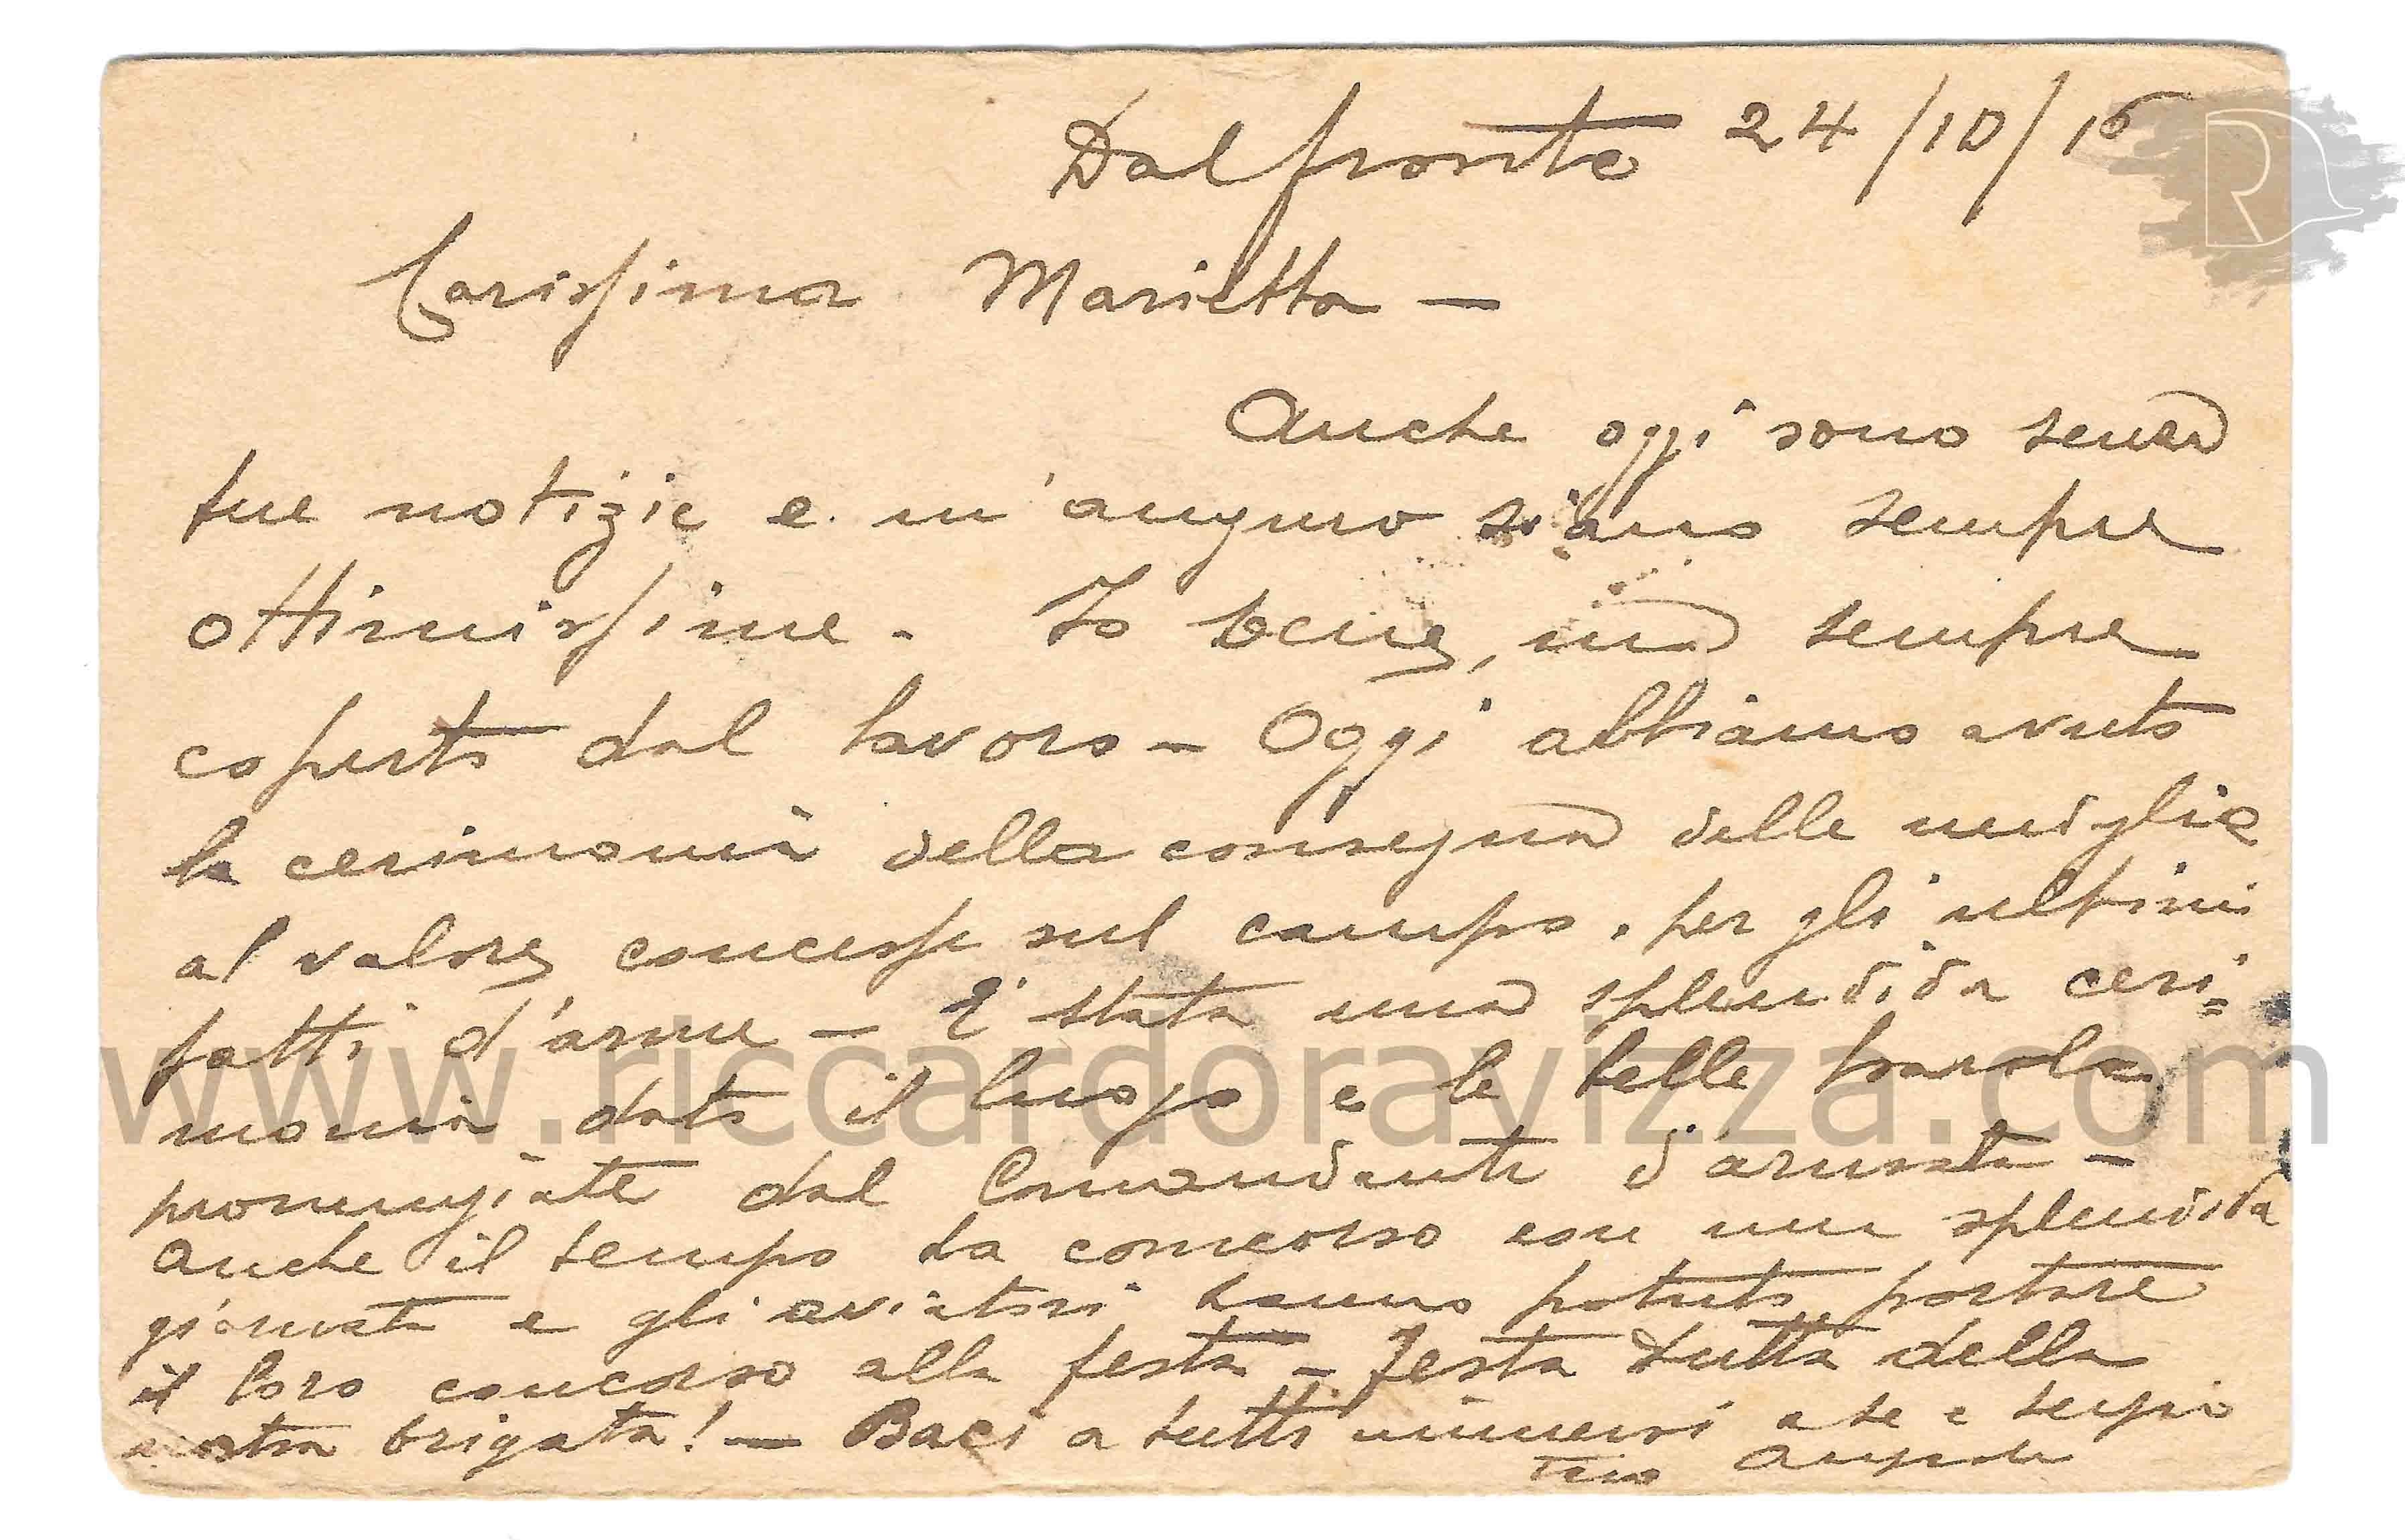 Dal fronte 24/10/16
Carissima Marietta —
Anche oggi sono senza
tue notizie e m'auguro siano sempre
ottimissime - Io bene, ma sempre
coperto dal lavoro - Oggi abbiamo avuto
la cerimonia della consegna delle medaglie
al valore concesse sul campo per gli ultimi
fatti d'arme - E' stata una splendida ceri=
monia dato il luogo e le belle parole
pronunziate dal Comandante d'armata -
anche il tempo ha concorso con una splendida
giornata e gli aviatori hanno potuto portare
il loro concorso alla festa - Festa tutta della
nostra brigata! — Baci a tutti numerosi a te e
tuo
www.riccardoravizza.com